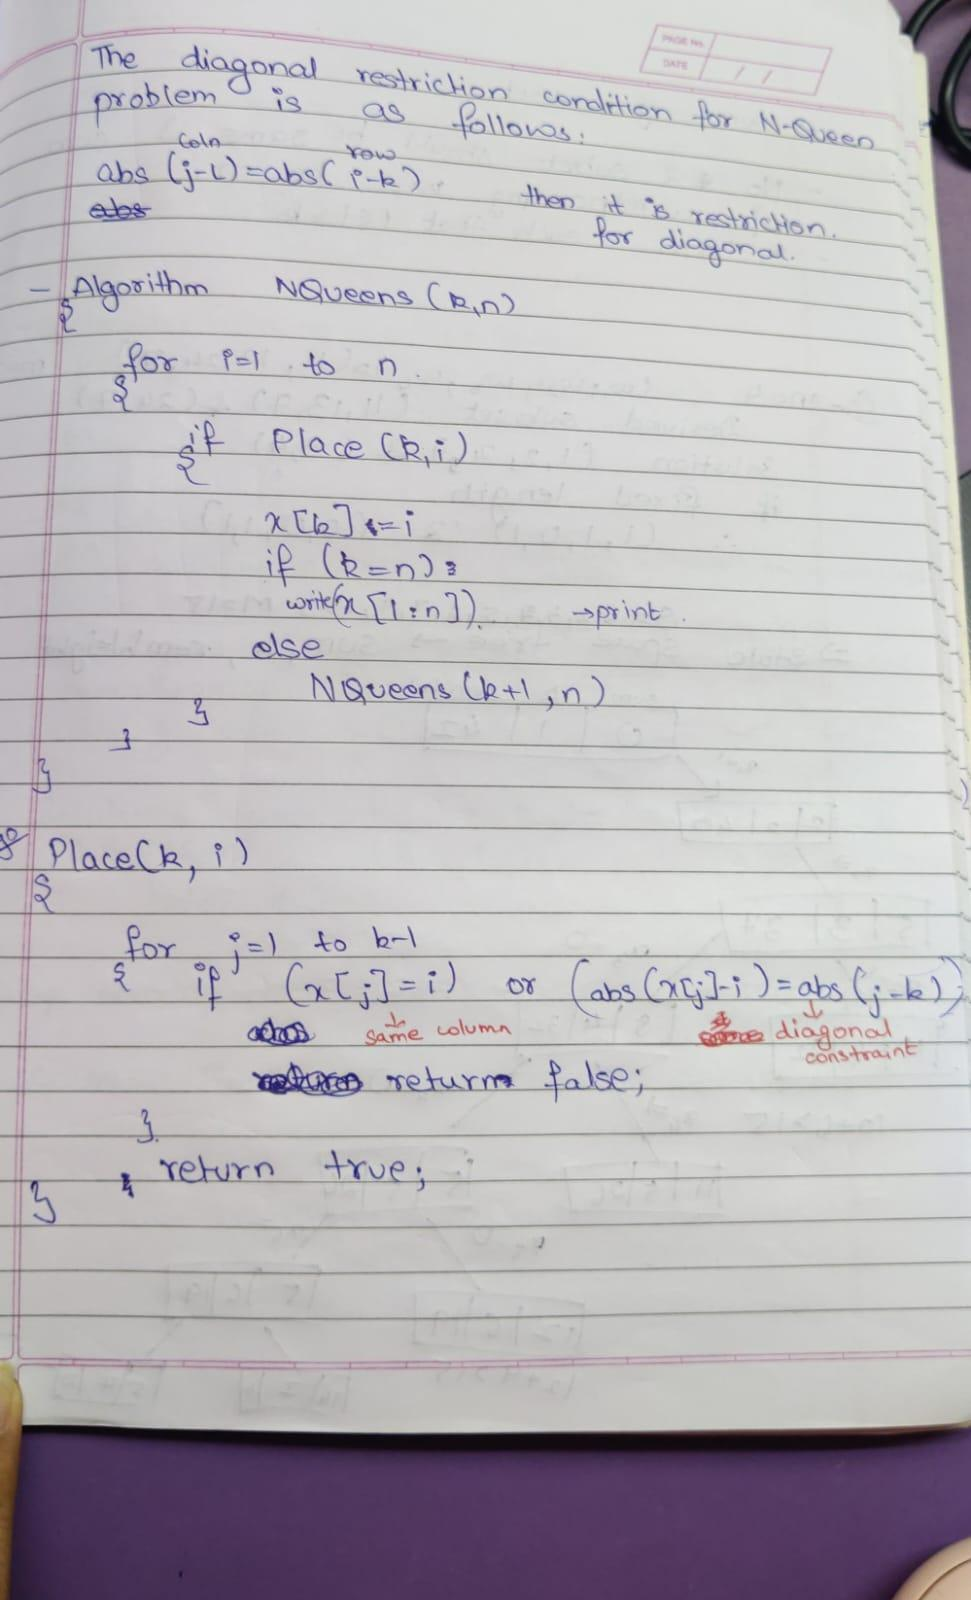 PAGE No.
DATE / /
The diagonal restriction condition for N-Queen
problem is as follows:
coln row
abs (j-l)=abs(i-k) then it is restriction.
for diagonal.
- Algorithm NQueens (k,n)
{
for i=1 to n.
{
if Place (k,i)
{
x[k]←i
if (k=n):
write(x[1:n]). →print.
else
NQueens (k+1,n)
}
}
}
Place(k, i)
{
for j=1 to k-1
{ if (x[j]=i) or (abs(x[j]-i)=abs(j-k));
↓ same column ↓ diagonal
constraint
return false;
}
return true;
}